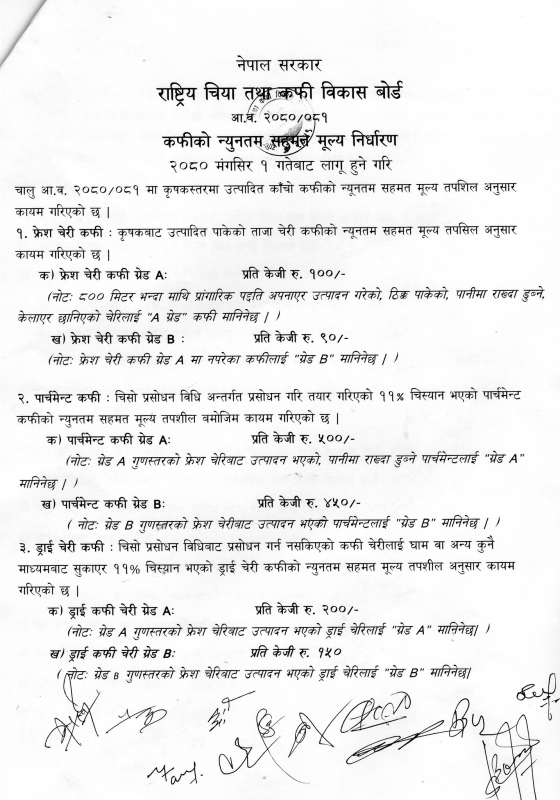 नेपाल सरकार
राष्ट्रिय चिया तथा कफी विकास बोर्ड
आ.व. २०८०/०८१
कफीको न्युनतम सहमत मूल्य निर्धारण
२०८० मंगसिर १ गतेबाट लागू हुने गरि
चालु आ.व. २०८०/०८१ मा कृषकस्तरमा उत्पादित काँचो कफीको न्यूनतम सहमत मूल्य तपशिल अनुसार
कायम गरिएको छ |
१. फ्रेश चेरी कफी : कृषकबाट उत्पादित पाकेको ताजा चेरी कफीको न्यूनतम सहमत मूल्य तपसिल अनुसार
कायम गरिएको छ |
क) फ्रेश चेरी कफी ग्रेड A: प्रति केजी रु. १००/-
(नोटः ८०० मिटर भन्दा माथि प्रांगारिक पद्दति अपनाएर उत्पादन गरेको, ठिक्क पाकेको, पानीमा राख्दा डुब्ने,
केलाएर छानिएको चेरिलाई "A ग्रेड" कफी मानिनेछ | )
ख) फ्रेश चेरी कफी ग्रेड B : प्रति केजी रु. ९०/-
(नोटः फ्रेश चेरी कफी ग्रेड A मा नपरेका कफीलाई "ग्रेड B" मानिनेछ | )
२. पार्चमेन्ट कफी : चिसो प्रसोधन विधि अन्तर्गत प्रसोधन गरि तयार गरिएको ११% चिस्यान भएको पार्चमेन्ट
कफीको न्युनतम सहमत मूल्य तपशील बमोजिम कायम गरिएको छ |
क) पार्चमेन्ट कफी ग्रेड A: प्रति केजी रु. ५००/-
(नोटः ग्रेड A गुणस्तरको फ्रेश चेरिबाट उत्पादन भएको, पानीमा राख्दा डुब्ने पार्चमेन्टलाई "ग्रेड A"
मानिनेछ | )
ख) पार्चमेन्ट कफी ग्रेड B: प्रति केजी रु. ४५०/-
( नोटः ग्रेड B गुणस्तरको फ्रेश चेरीबाट उत्पादन भएको पार्चमेन्टलाई "ग्रेड B" मानिनेछ | )
३. ड्राई चेरी कफी : चिसो प्रसोधन विधिबाट प्रसोधन गर्न नसकिएको कफी चेरीलाई घाम वा अन्य कुनै
माध्यमबाट सुकाएर ११% चिस्यान भएको ड्राई चेरी कफीको न्युनतम सहमत मूल्य तपशील अनुसार कायम
गरिएको छ |
क) ड्राई कफी चेरी ग्रेड A: प्रति केजी रु. २००/-
(नोटः ग्रेड A गुणस्तरको फ्रेश चेरिबाट उत्पादन भएको ड्राई चेरिलाई "ग्रेड A" मानिनेछ| )
ख) ड्राई कफी चेरी ग्रेड B: प्रति केजी रु. १५०
( नोटः ग्रेड B गुणस्तरको फ्रेश चेरिबाट उत्पादन भएको ड्राई चेरिलाई "ग्रेड B" मानिनेछ|